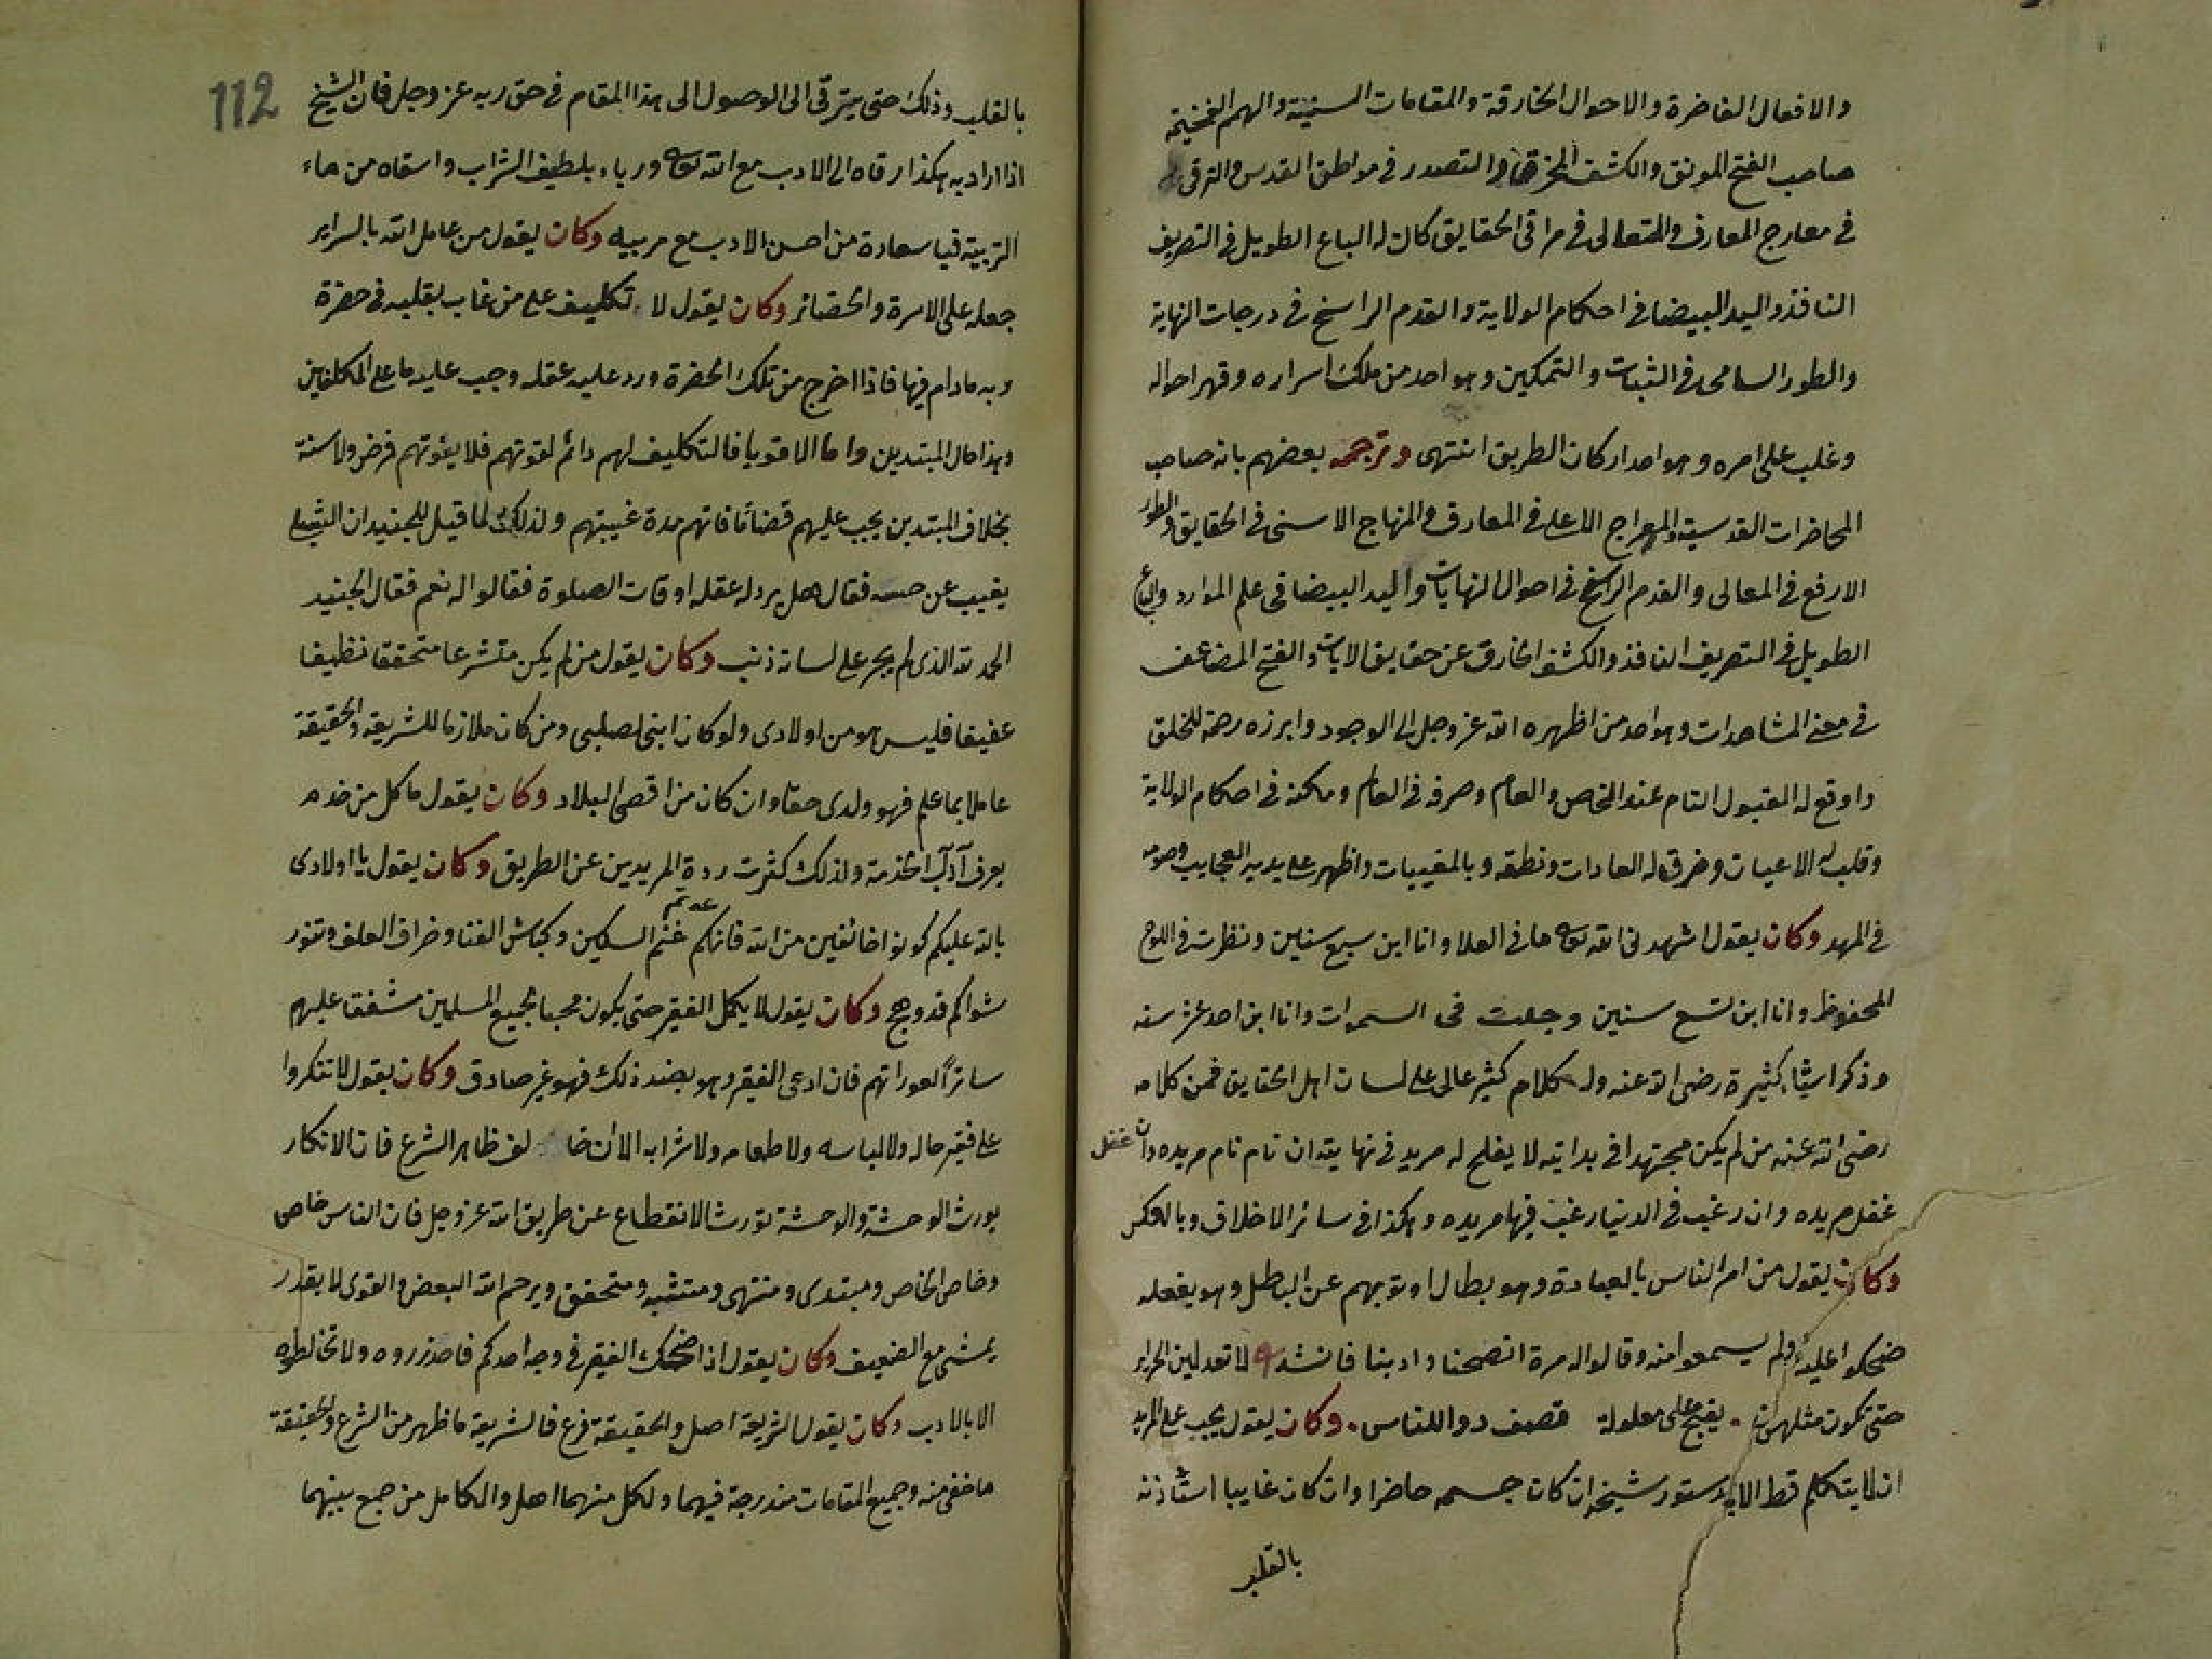 والافعال الفاخرة والاحوال الخارقة والمقامات السنية والهمم الفخيمة
صاحب الفتح المونق والكشف المخرق والتصدر في مواطن القدس والترقي
في معارج المعارف والمتعالى في مراقى الحقايق كان له الباع الطويل في التصريف
النافذ واليد البيضا في احكام الولاية والقدم الراسخ في درجات النهاية
والطور السامى في الثبات والتمكين وهو احد من ملك اسراره وقهر احواله
وغلب على امره وهو احد اركان الطريق انتهى وترجمه بعضهم بانه صاحب
المحاضرات القدسية والمعراج الاعلى في المعارف والمنهاج الاسنى في الحقايق والطور
الارفع في المعالى والقدم الراسخ في احوال النهايات واليد البيضا في علم الموارد والباع
الطويل في التصريف النافذ والكشف الخارق عن حقايق الايات والفتح المضاعف
في معنى المشاهدات وهو احد من اظهره الله عز وجل الى الوجود وابرزه رحمة للخلق
واوقع له القبول التام عند الخاص والعام وصرفه في العالم ومكنه في احكام الولاية
وقلب له الاعيان وخرق له العادات ونطقه وبالمغيبات واظهر على يديه العجايب وصومه
في المهد وكان يقول اشهدنى الله تعا ما في العلا وانا ابن سبع سنين ونظرت في اللوح
المحفوظ وانا ابن تسع سنين وجلت في السموات وانا ابن احد عشر سنه
وذكر اشياء كثيرة رضى الله عنه وله كلام كثير عالى على لسان اهل الحقايق فمن كلامه
رضى الله عنه من لم يكن مجتهدا في بدايته لا يفلح له مريد في نهايته ان نام نام مريده وان غفل
غفل مريده وان رغب في الدنيا رغب فيها مريده وهكذا في سائر الاخلاق وبالعكس
وكان يقول من امر الناس بالعبادة وهو بطال او توبهم عن الباطل وهو يفعله
ضحكوا عليه ولم يسمعوا منه وقالوا له مرة انصحنا وادبنا فانشد لا تعدلين الحراير
حتى تكون مثلهن . يقبح على معلولة تصف دوا للناس . وكان يقول يجب على المريد
ان لا يتكلم قط الا بدستور شيخه ان كان جسمه حاضرا وان كان غايبا استأذنه
بالقلب
112
بالقلب وذلك حتى يترقى الى الوصول الى هذا المقام في حق ربه عز وجل فان الشيخ
اذا اراد به هكذا رقاه الى الادب مع الله تعا ورباه بلطيف الشراب واسقاه من ماء
التربية فيا سعادة من احسن الادب مع مربيه وكان يقول من عامل الله بالسراير
جعله على الاسرة والحضائر وكان يقول لا تكليف على من غاب بقلبه في حضرة
ربه مادام فيها فاذا اخرج من تلك الحضرة ورد عليه عقله وجب عليه ما على المكلفين
وهذا حال المبتدين واما الاقويا فالتكليف لهم دائم لقوتهم فلا يفوتهم فرض ولا سنة
بخلاف المبتدين يجب عليهم قضا ما فاتهم مدة غيبتهم ولذلك لما قيل للجنيد ان الشبلى
يغيب عن حسه فقال هل يرد له عقله اوقات الصلوة فقالوا له نعم فقال الجنيد
الحمد لله الذى لم يجر على لسانه ذنب وكان يقول من لم يكن متشرعا متحققا نظيفا
عفيفا فليس هو من اولادى ولو كان ابنى لصلبى ومن كان ملازما للشريعة والحقيقة
عاملا بما علم فهو ولدى حقا وان كان من اقصى البلاد وكان يقول ما كل من خدم
يعرف آداب الخدمة ولذلك كثرت ردة المريدين عن الطريق وكان يقول يا اولادى
بالله عليكم كونوا خائفين من الله فانكم غنم السكين وكباش الفنا وخراف العلف وتنور
شواكم قد وهج وكان يقول لا يكمل الفقير حتى يكون محبا لجميع المسلمين مشفقا عليهم
ساترا لعوراتهم فان ادعى الفقر وهو بضد ذلك فهو غير صادق وكان يقول لا تنكروا
على فقير حاله ولا لباسه ولا طعامه ولا شرابه الا ان خالف ظاهر الشرع فان الانكار
يورث الوحشة والوحشة تورث الانقطاع عن طريق الله عز وجل فان الناس خاص
وخاص الخاص ومبتدى ومنتهى ومتشبه ومتحقق ويرحم الله البعض والقوى لا يقدر
يمشى مع الضعيف وكان يقول اذا ضحك الفقير في وجه احدكم فاحذروه ولا تخالطوه
الا بالادب وكان يقول الشريعة اصل والحقيقة فرع فالشريعة ما ظهر من الشرع والحقيقة
ما خفى منه وجميع المقامات مندرجة فيهما ولكل منهما اهل والكامل من جمع بينهما